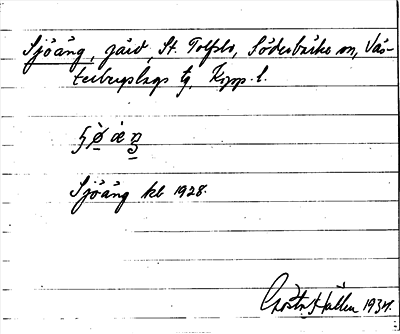 Sjöäng, gård, St. Tolfsbo, Söderbärke sn, Väs-
terbergslags tg, Kopp. l.
Sjöäng kb 1928.
Gösta Hallen 1934.